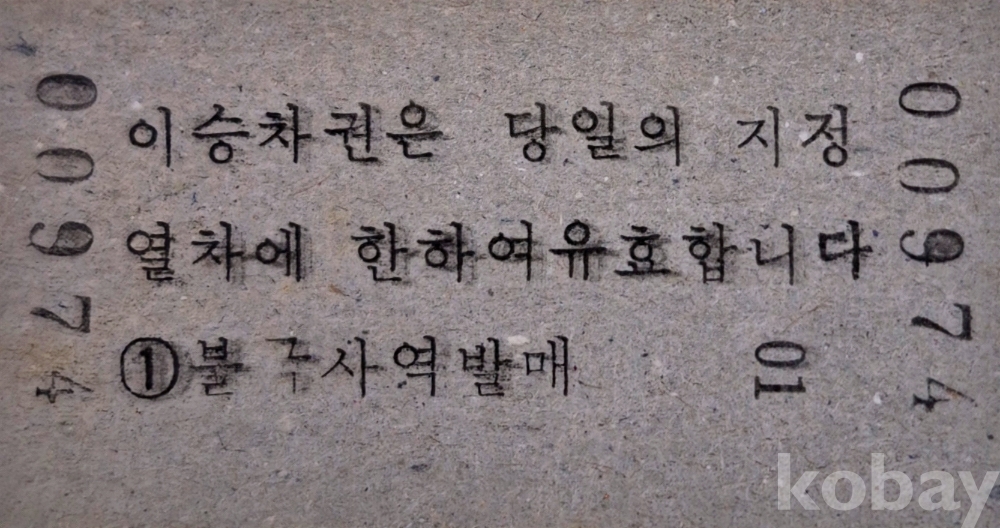 00974
이승차권은 당일의 지정
열차에 한하여유효합니다
①불구사역발매 01
00974
kobay